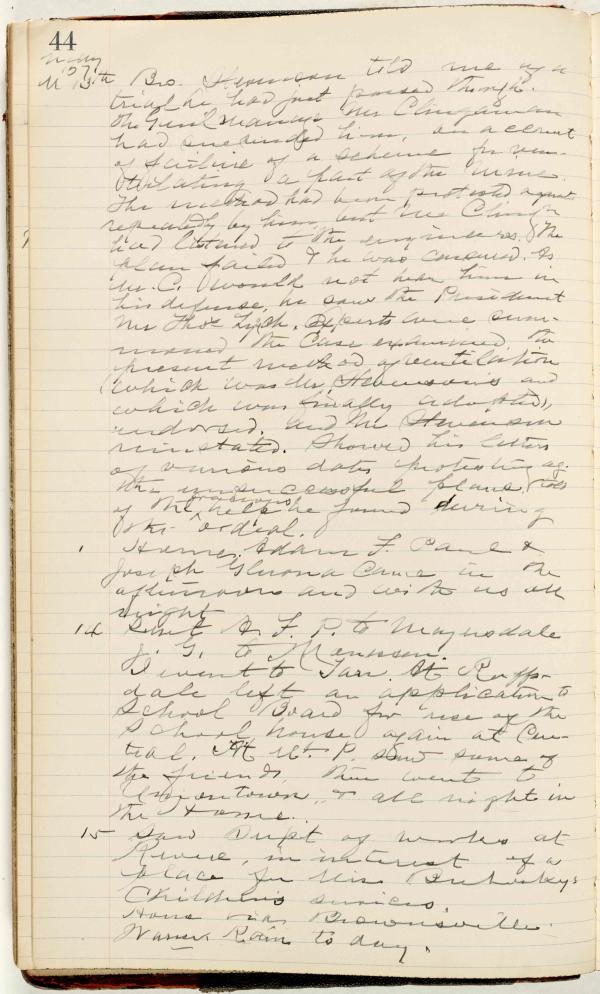 44
May
'57
M 13th Bro. Stevenson told me of a
trial he had just passed through.
The Genl manager Mr Clingerman
had suspended him, on account
of failure of a scheme for ven-
tilating a part of the mine.
The method had been protested against
repeatedly by him, but Mr Cling.
had listened to the engineers. The
plan failed & he was censured. As
Mr. C. would not hear him in
his defense, he saw the President
Mr Thos Lynch. Experts were sum-
moned, the case examined, the
present method of ventilation
(which was Mr. Stevenson's and
which was finally adopted),
endorsed, and Mr Stevenson
reinstated. Showed his letters
of various dates protesting ag.
the unsuccessful plans,
of the gracious help he found during
the ordeal.
Home. Adam F. Pane &
Joseph Gluona came in the
afternoon and with us all
night
14 Sent A. F. P. to Meyersdale
J. G. to Monessen.
I went to Tarr. At Ruffs-
dale left an application to
School Board for use of the
School house again at Cen-
tral. At Mt. P. saw some of
the friends, then went to
Uniontown, & all night in
the Home.
15 Saw Supt of works at
Revere, in interest of a
place for Miss
Children's services.
Home via Brownsville.
Warmer. Rain to day.